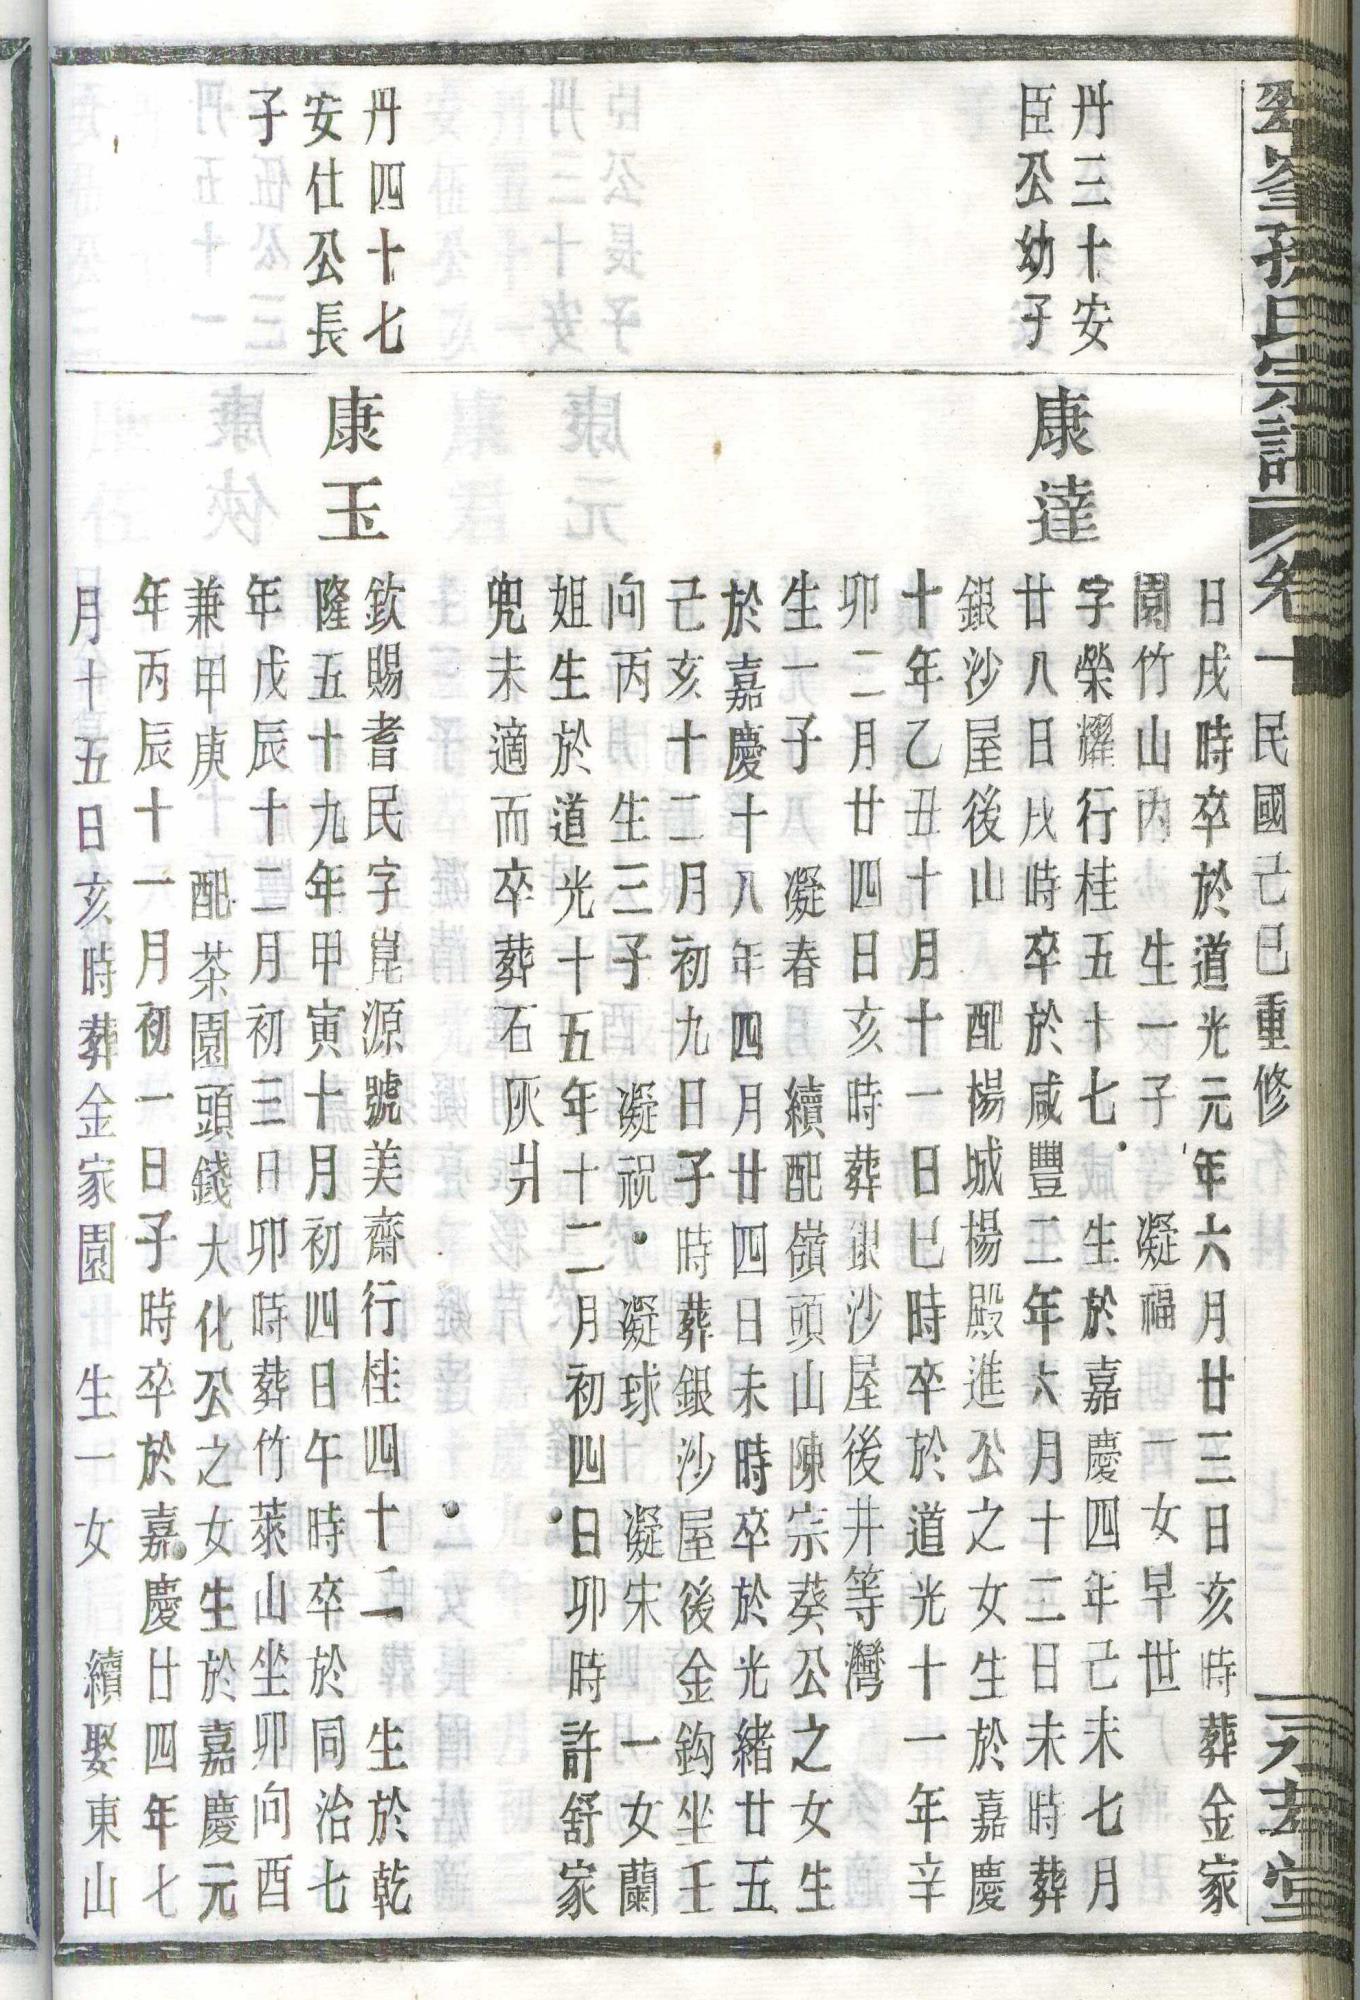 孫氏宗譜 卷一 民國己巳重修 堂
日戌時卒於道光元年六月廿三日亥時葬金家
園竹山內沙 生一子 凝福 一女早世
丹三十安
臣公幼子
康達
字榮耀行桂五十七 生於嘉慶四年己未七月
廿八日戌時卒於咸豐二年六月十二日未時葬
銀沙屋後山 配楊城楊殿進公之女生於嘉慶
十年乙丑十月十一日巳時卒於道光十一年辛
卯二月廿四日亥時葬銀沙屋後井等灣
生一子 凝春 續配嶺頭山陳宗葵公之女生
於嘉慶十八年四月廿四日未時卒於光緒廿五
己亥十二月初九日子時葬銀沙屋後金鈎坐壬
向丙 生三子 凝祝 凝球 凝宋 一女蘭
姐生於道光十五年十二月初四日卯時許舒家
兜未適而卒葬石灰爿
丹四十七
安仕公長
子
康玉
欽賜耆民字崑源號美齋行桂四十二 生於乾
隆五十九年甲寅十月初四日午時卒於同治七
年戊辰十二月初三日卯時葬竹萊山坐卯向酉
兼甲庚 配茶園頭錢大化公之女生於嘉慶元
年丙辰十一月初一日子時卒於嘉慶廿四年七
月十五日亥時葬金家園 生一女 續娶東山